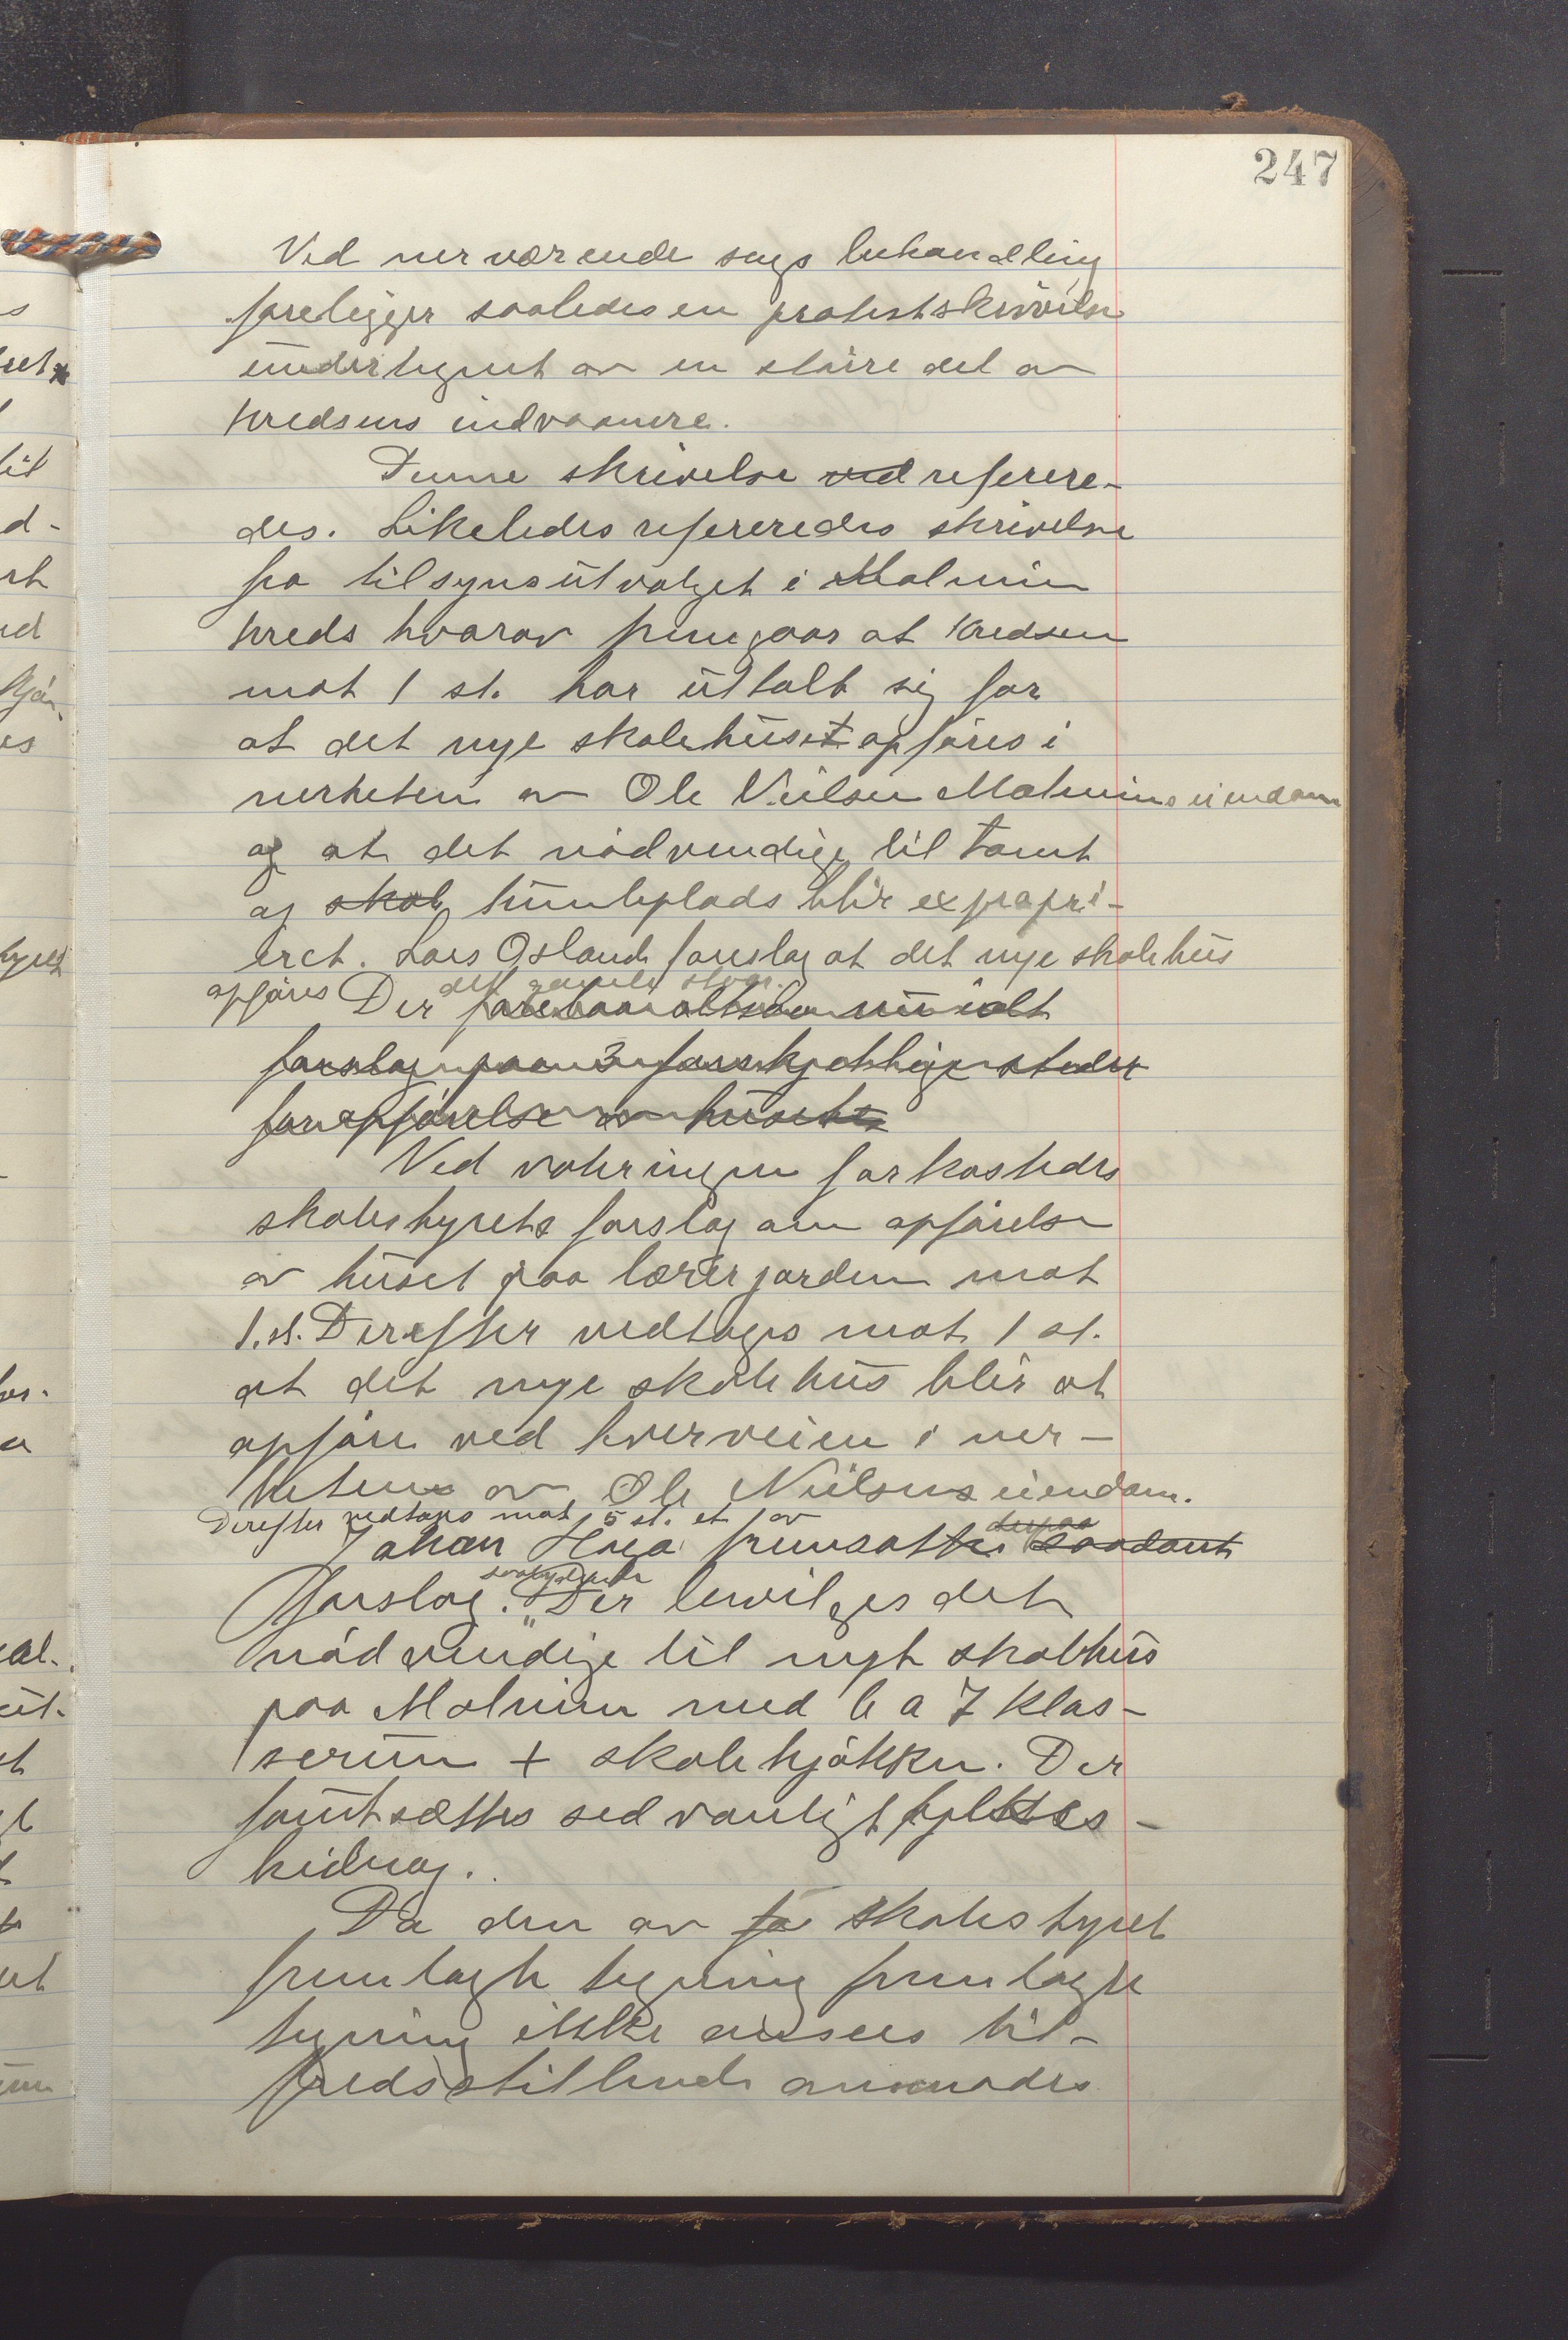 247
Ved nerværende sags behandling
foreligger saaledes en protestskrivelse
undertegnet av en större del av
kredsens indvaanere.
Denne skrivelse ved refere-
des. Likeledes refereredes skrivelse
fra tilsynsutvalget i Malmin
kreds hvorav fremgaar at kredsen
mot 1 st. har uttalt sig for
at det nye skolehuset opföres i
nerheten av Ole Nilsen Malmins eiendom
og at det nödvendige til tomt
og skole tumleplads blir expropri-
eret. Lars Osland foreslog at det nye skolehus
opföres det gamle staar.
Der forelaa altsaa nu ialt
forslag paa 3 forskjellige steder
for opförelse av husets
Ved voteringen forkastedes
skolestyrets forslag om opförelse
av huset paa lærerjorden mot
1. st. Derefter vedtoges mot 1 st.
at det nye skolehus blir at
opföre ved tverveien i ner-
heten av Ole Nilsens eiendom.
Derefter vedtoges mot 5 st. et av
Johan Hoga fremsatte derpaa saadant
forslag. saalydende "Der bevilges det
nödvendige til nyt skolehus
paa Malmin med 6 a 7 klas-
serum + skolekjökken. Der
forutsættes sedvanligt fylkes-
bidrag.
Da den av fo skolestyret
fremlagte tegning fremlagte
tegning ikke ansees til-
fredsstillende anmodes